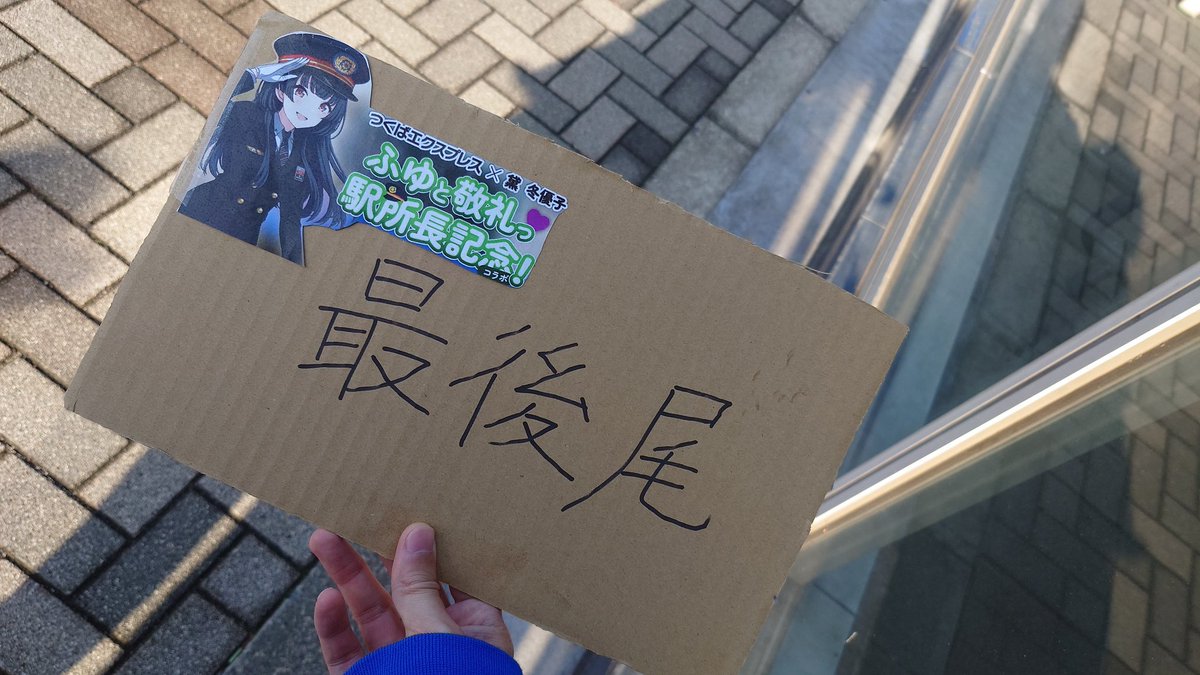 つくばエクスプレス×黛 冬優子
ふゆと敬礼っ
駅所長記念!
コラボ
最後尾